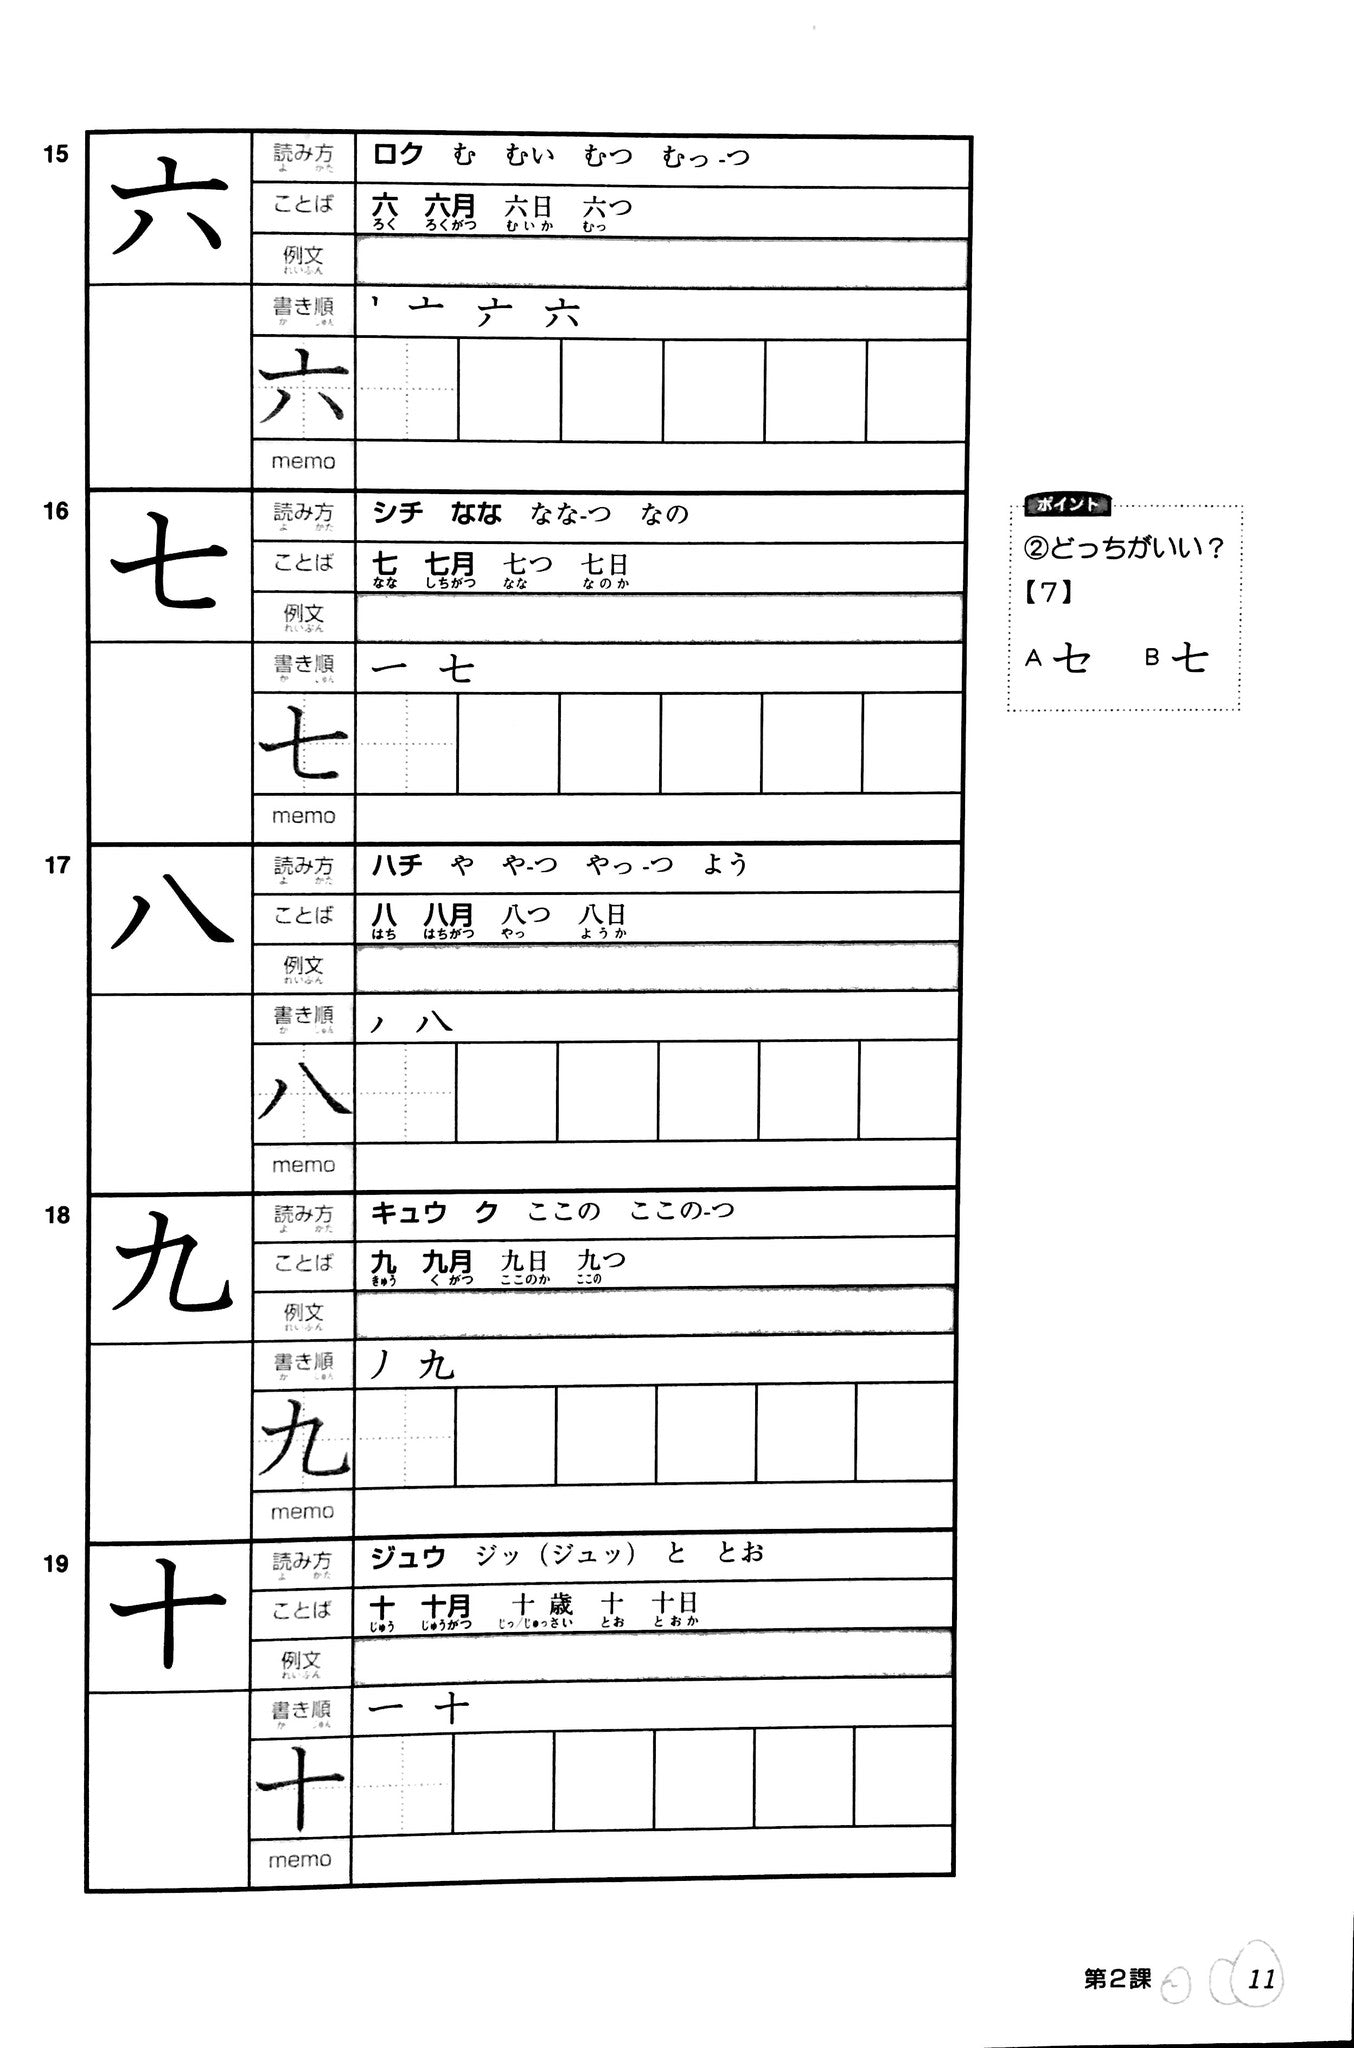 15
六
読み方 ロク む むい むつ むっ-つ
よ かた
ことば 六 六月 六日 六つ
ろく ろくがつ むいか むっ
例文
れいぶん
書き順 丶 亠 六 六
か じゅん
六
memo
16
七
読み方 シチ なな なな-つ なの
よ かた
ことば 七 七月 七つ 七日
なな しちがつ なな なのか
例文
れいぶん
書き順 一 七
か じゅん
七
memo
17
八
読み方 ハチ や や-つ やっ-つ よう
よ かた
ことば 八 八月 八つ 八日
はち はちがつ やっ ようか
例文
れいぶん
書き順 ノ 八
か じゅん
八
memo
18
九
読み方 キュウ ク ここの ここの-つ
よ かた
ことば 九 九月 九日 九つ
きゅう くがつ ここのか ここの
例文
れいぶん
書き順 ノ 九
か じゅん
九
memo
19
十
読み方 ジュウ ジッ（ジュッ） と とお
よ かた
ことば 十 十月 十歳 十 十日
じゅう じゅうがつ じっ/じゅっさい とお とおか
例文
れいぶん
書き順 一 十
か じゅん
十
memo
ポイント
②どっちがいい？
【7】
A セ B 七
第2課 11